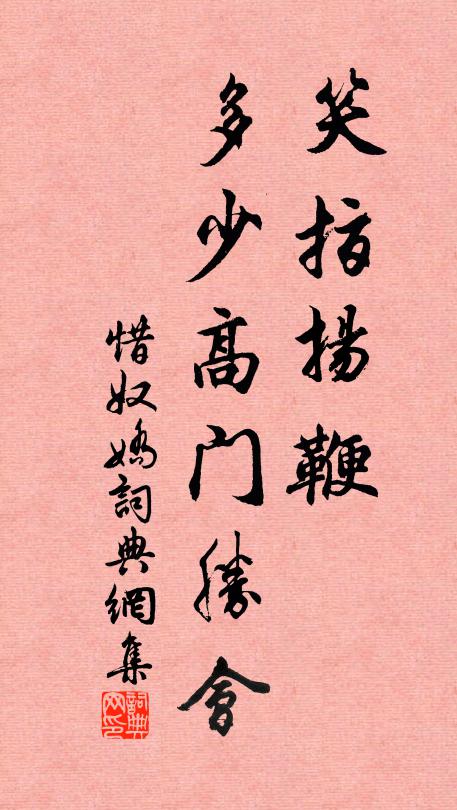 笑指揚鞭
多少高门勝會
惜奴嬌詞典網集
詞典网印